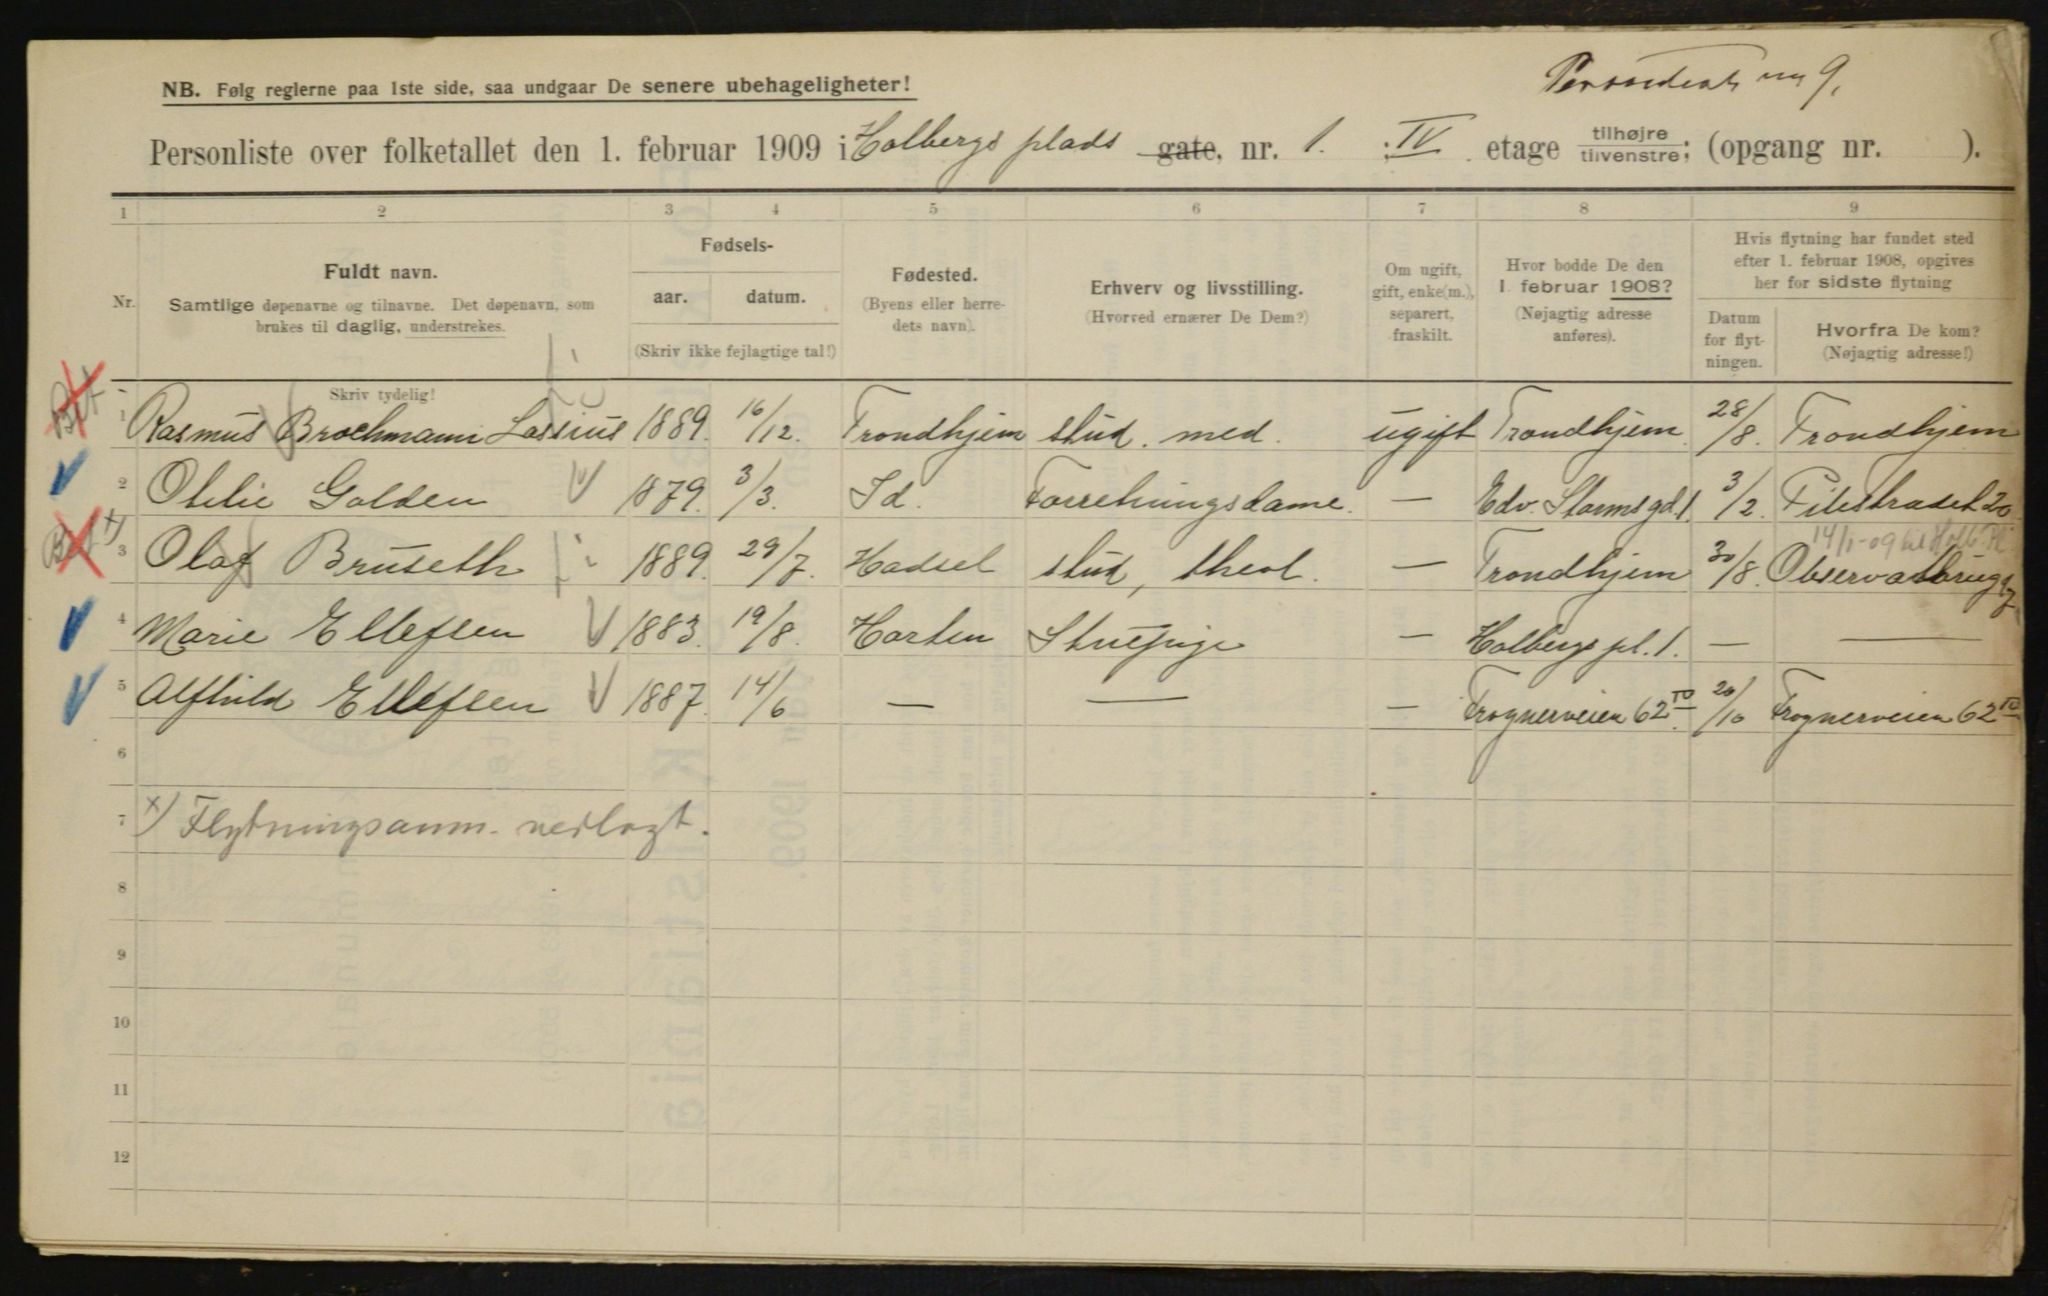 nr 9.
NB. Følg reglerne paa 1ste side, saa undgaar De senere ubehageligheter!
Personliste over folketallet den 1. februar 1909 i Holbergs plads gate, nr. 1. : IV etage tilhøjre tilvenstre; (opgang nr. ).
1 2 3 4 5 6 7 8 9
Nr. Fuldt navn. Samtlige døpenavne og tilnavne. Det døpenavn, som brukes til daglig, understrekes. Skriv tydelig!
Fødsels- aar. datum. (Skriv ikke fejlagtige tal!)
Fødested. (Byens eller herredets navn).
Erhverv og livsstilling. (Hvorved ernærer De Dem?)
Om ugift, gift, enke(m.), separert, fraskilt.
Hvor bodde De den 1 februar 1908? (Nøjagtig adresse anføres).
Hvis flytning har fundet sted efter 1. februar 1908, opgives her for sidste flytning
Datum for flytningen. Hvorfra De kom? (Nøjagtig adresse!)
Bet 1 Rasmus Brochmann Lossius 1889. 16/12. Trondhjem stud. med. ugift Trondhjem. 28/8. Trondhjem
2 Otilie Golden 1879. 3/3. Id. Forretningsdame. — Edv. Stormsgd. 1. 3/2. Pilestrædet 20
14/1-09 til Holb. Pl.
x) 3 Olaf Bruseth 1889. 29/7. Hadsel stud, theol. — Trondhjem 30/8. Observatoriegt
4 Marie Ellefsen 1883. 19/8. Horten Stuepige — Holbergs pl. 1. — —
5 Alfhild Ellefsen 1887. 14/6 — — — Frognerveien 62 IV. 20/10 Frognerveien 62 IV
6
7 x) Flytningsanm. vedlagt.
8
9
10
11
12